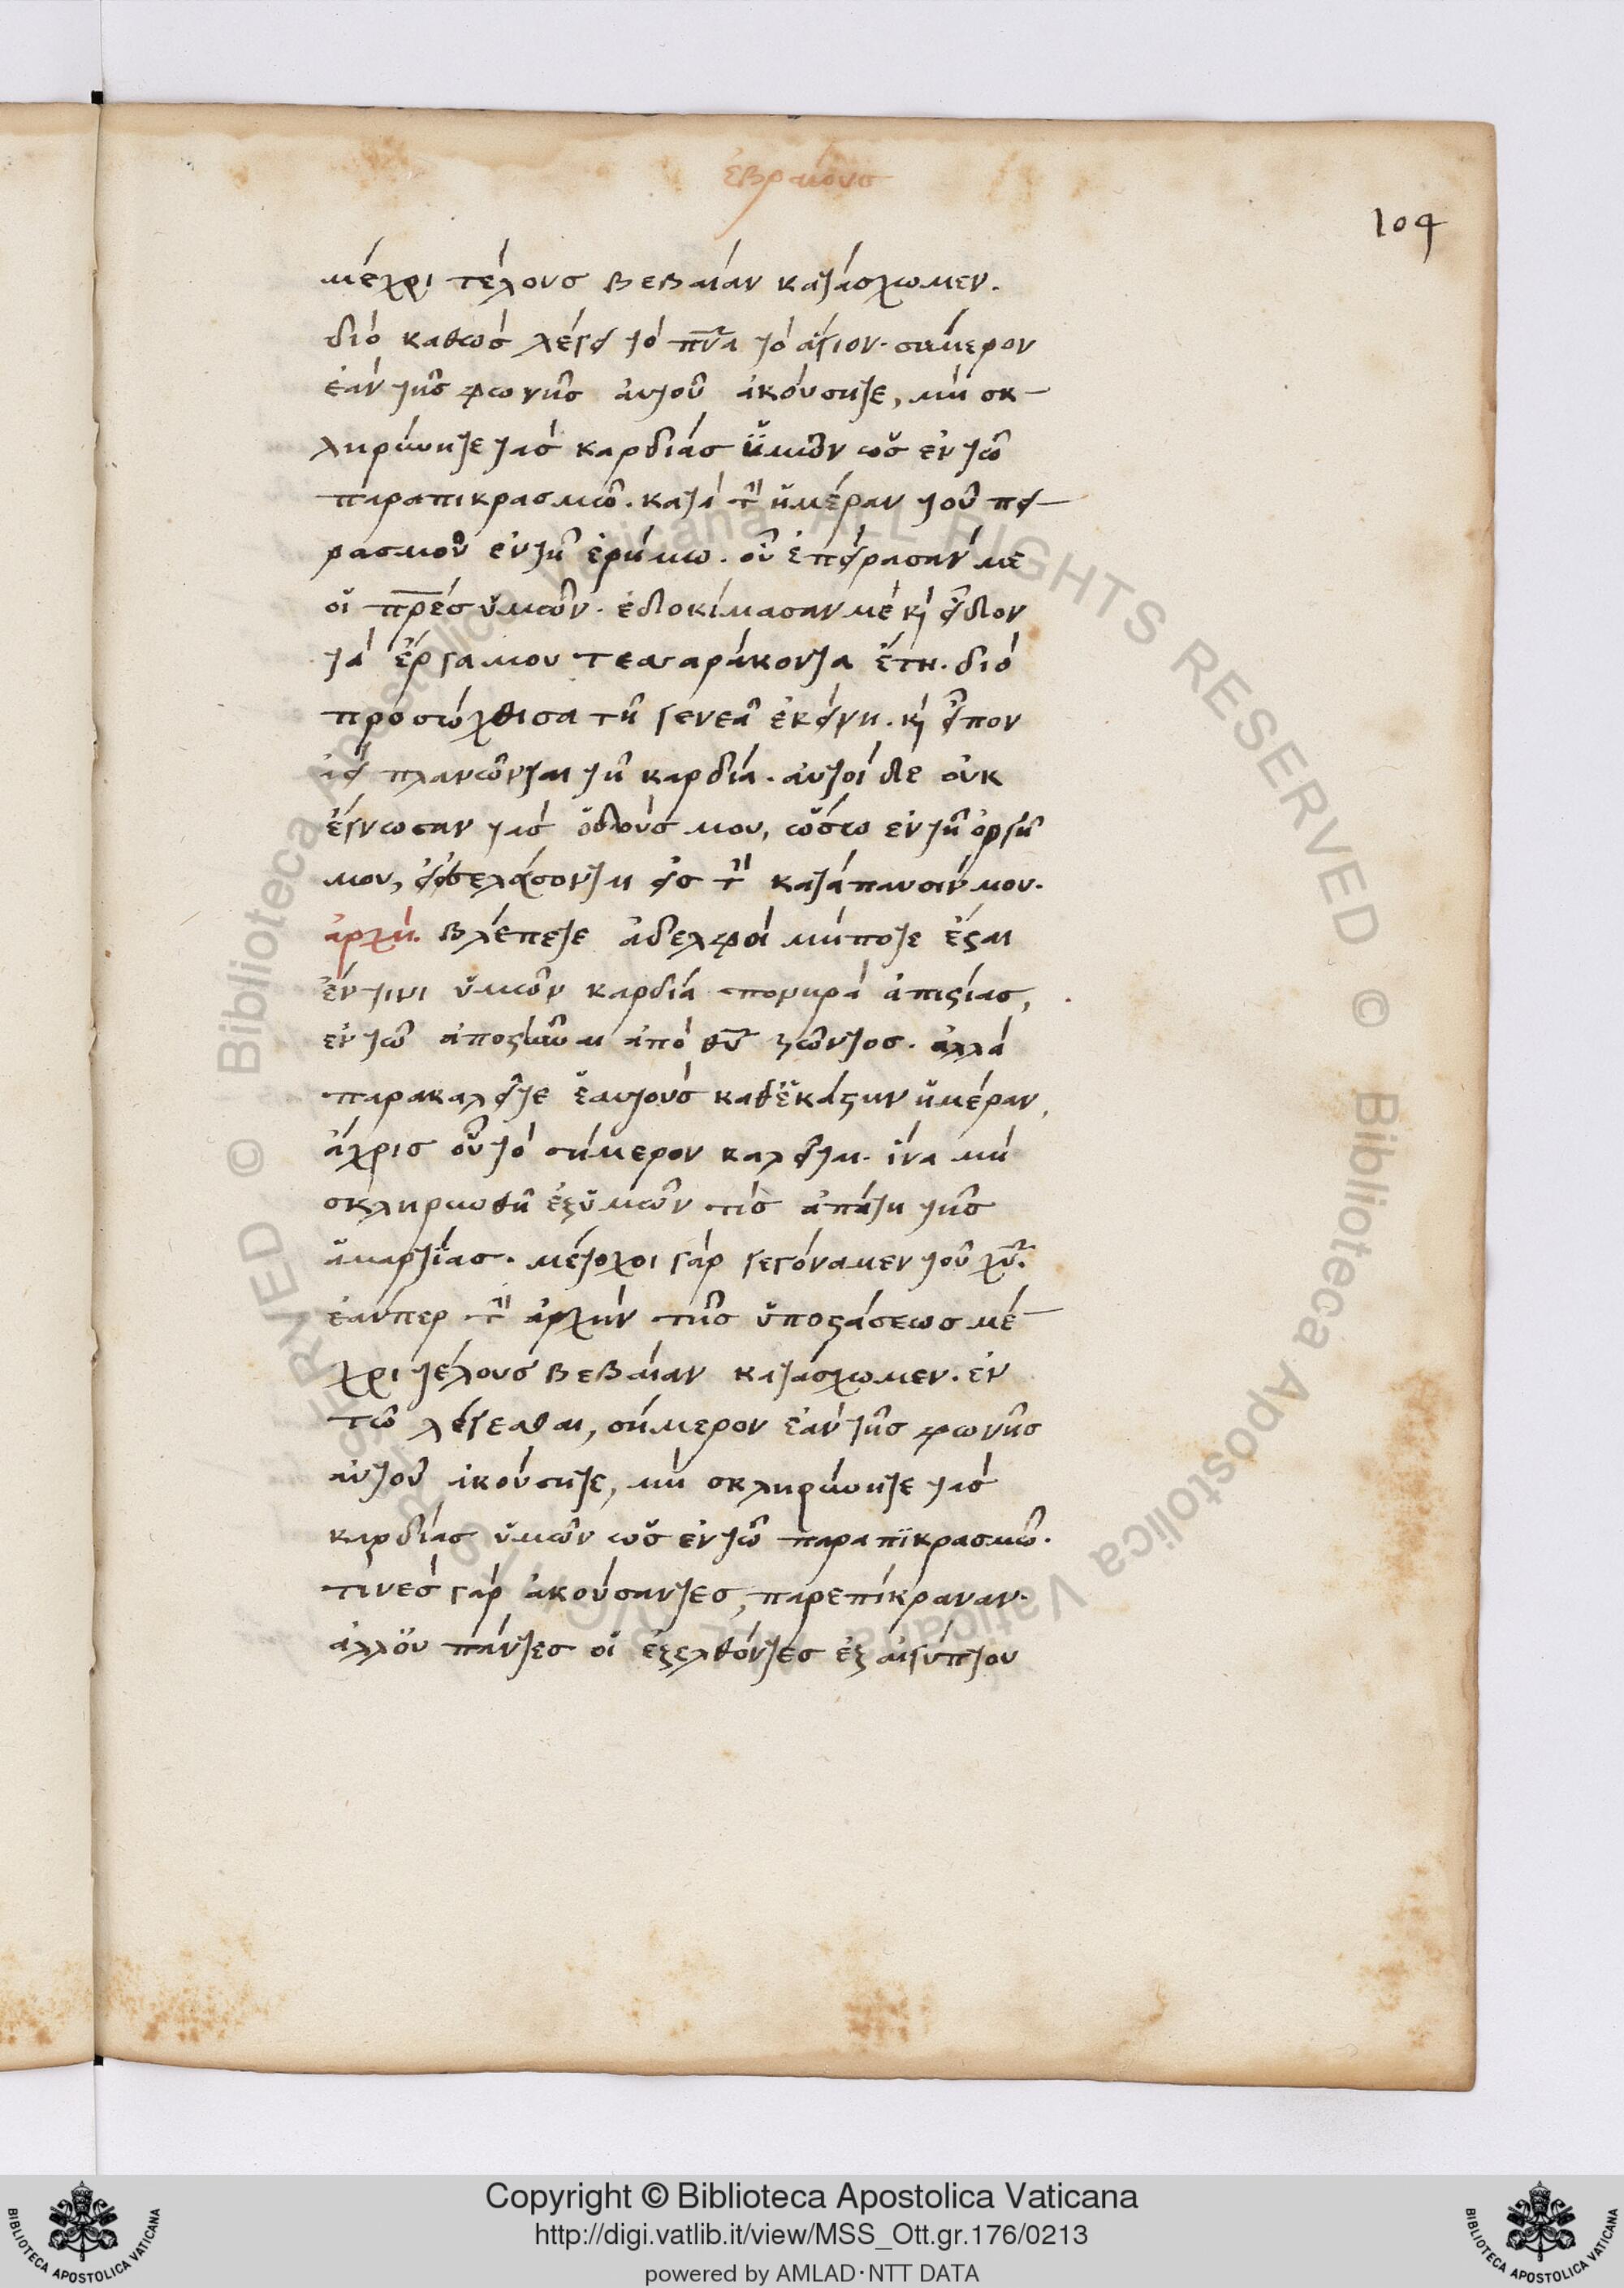 ἑβραίους
104
μέχρι τέλους βεβαίαν κατάσχωμεν.
διὸ καθὼς λέγει τὸ πνα τὸ ἅγιον. σήμερον
ἐὰν τῆς φωνῆς αὐτοῦ ἀκούσητε, μὴ σκ-
ληρύνητε τὰς καρδίας ὑμῶν ὡς ἐν τῶ
παραπικρασμῶ. κατὰ τὴν ἡμέραν τοῦ πει-
ρασμοῦ ἐν τῆ ἐρήμω. οὗ ἐπείρασάν με
οἱ πρες ὑμῶν. ἐδοκίμασαν με κὶ εἶδον
τὰ ἔργα μου τεσσαράκοντα ἔτη. διὸ
προσώχθισα τῆ γενεᾶ ἐκείνη. κὶ εἶπον
ἀεὶ πλανῶνται τῆ καρδία. αὐτοὶ δὲ οὐκ
ἔγνωσαν τὰς ὁδούς μου, ὡς ὤμοσα ἐν τῆ ὀργῆ
μου, εἰ εἰσελεύσονται εἰς τὴν κατάπαυσίν μου.
ἀρχή. βλέπετε ἀδελφοὶ μήποτε ἔσται
ἔν τινι ὑμῶν καρδία πονηρὰ ἀπιστίας,
ἐν τῶ ἀποστῆναι ἀπὸ θυ ζῶντος. ἀλλὰ
παρακαλεῖτε ἑαυτοὺς καθ' ἑκάστην ἡμέραν,
ἄχρις οὗ τὸ σήμερον καλεῖται. ἵνα μὴ
σκληρυνθῆ ἐξ ὑμῶν τὶς ἀπάτη τῆς
ἁμαρτίας. μέτοχοι γὰρ γεγόναμεν τοῦ χυ.
ἐάνπερ τὴν ἀρχὴν τῆς ὑποστάσεως μέ-
χρι τέλους βεβαίαν κατάσχωμεν. ἐν
τῶ λέγεσθαι, σήμερον ἐὰν τῆς φωνῆς
αὐτοῦ ἀκούσητε, μὴ σκληρύνητε τὰς
καρδίας ὑμῶν ὡς ἐν τῶ παραπϊκρασμῶ.
τινὲς γὰρ ἀκούσαντες, παρεπίκραναν.
ἀλλ' οὐ πάντες οἱ ἐξελθόντες ἐξ αἰγύπτου
Copyright © Biblioteca Apostolica Vaticana
http://digi.vatlib.it/view/MSS_Ott.gr.176/0213
powered by AMLAD·NTT DATA